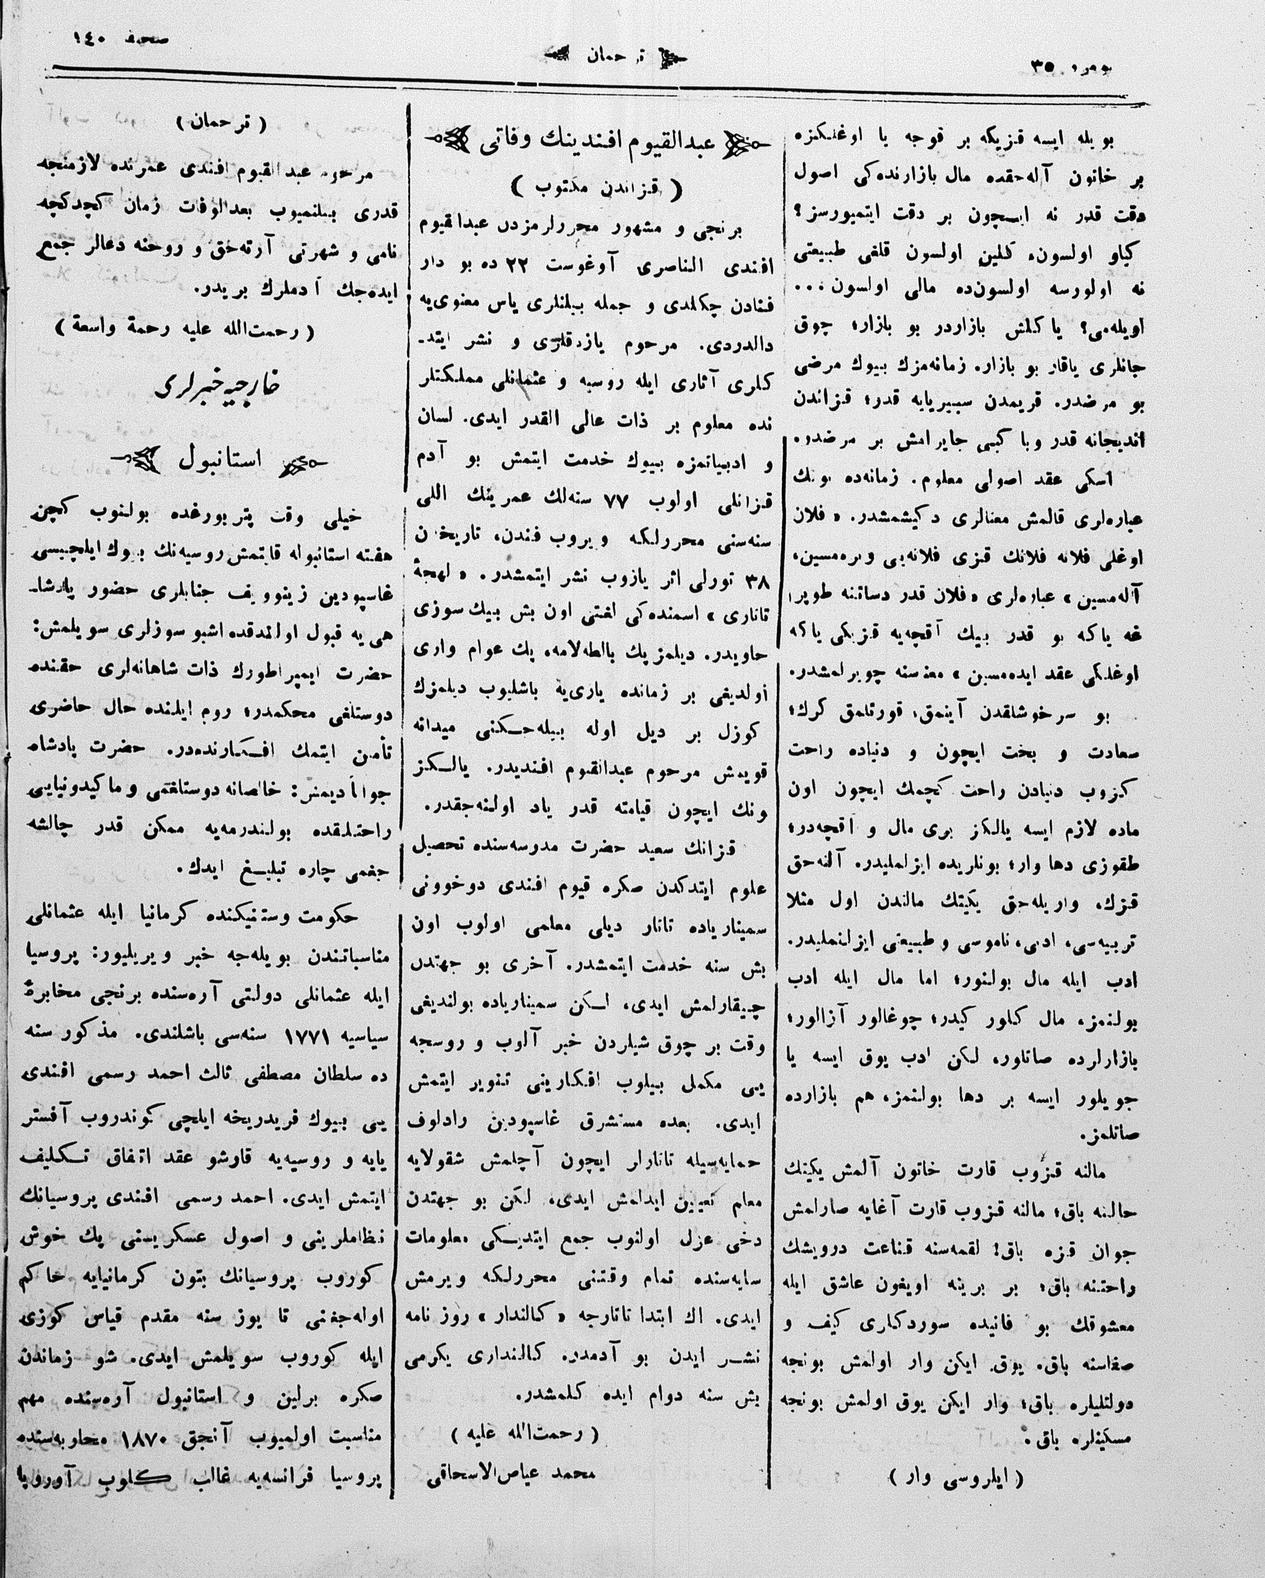 نومرو ٣٥
ترجمان
صحیفه ١٤٠
بویله ایسه قزیکه بر قوجه یا اوغلکزه
بر خاتون آلهجقده مال بازارنده‌کی اصول
دقت قدر نه ایچون بر دقت ایتمیورسز؟
کیاو اولسون، کلین اولسون قلغی طبیعتی
نه اولورسه اولسون‌ده مالی اولسون...
اویله‌می؟ یاکلش بازاردر بو بازار؛ چوق
جانلری یاقار بو بازار. زمانه‌مزك بیوك مرضی
بو مرضدر. قریمدن سیبریایه قدر؛ قزاندن
اندیجانه قدر وبا کبی جایرامش بر مرضدر.
اسکی عقد اصولی معلوم. زمانه‌ده بونك
عباره‌لری قالمش معنالری دکیشمشدر. «فلان
اوغلی فلانه فلانك قزی فلانه‌یی ویره‌مسین،
آله‌مسین» عباره‌لری «فلان قدر دساتنه طوپرا
غه یاکه بو قدر بیك آقچه‌یه قزیکی یاکه
اوغلکی عقد ایده‌مسین» معنسنه چویرلمشدر.
بو سرخوشلقدن آینمق، قورتلمق کرك؛
سعادت و بخت ایچون و دنیاده راحت
کیزوب دنیادن راحت کچمك ایچون اون
ماده لازم ایسه یالکز بری مال و آقچه‌در؛
طقوزی دها وار؛ بونلریده ایزلملیدر. آلنه‌حق
قزك، واریله‌جق یکیتك مالندن اول مثلا
تربیه‌سی، ادبی، ناموسی و طبیعتی ایزلنملیدر.
ادب ایله مال بولنور؛ اما مال ایله ادب
بولنمز، مال کلور کیدر؛ چوغالور آزالور؛
بازارلرده صاتلور، لکن ادب یوق ایسه یا
جویلور ایسه بر دها بولنمز، هم بازارده
صاتلمز.
مالنه قزوب قارت خاتون آلمش یکیتك
حالنه باق؛ مالنه قزوب قارت آغایه صارلمش
جوان قزه باق! لقمه‌سنه قناعت درویشك
راحتنه باق؛ بر برینه اویغون عاشق ایله
معشوقك بو فانیده سوردکلری کیف و
صفاسنه باق. یوق ایکن وار اولمش بونجه
دولتلیلره باق؛ وار ایکن یوق اولمش بونجه
مسکینلره باق.
(ایلروسی وار)
عبدالقیوم افندینك وفاتی
(قزاندن مکتوب)
برنجی و مشهور محررلرمزدن عبدالقیوم
افندی الناصری آوغوست ٢٢ ده بو دار
فنادن چکلدی و جمله بیلنلری یاس معنوی‌یه
دالدردی. مرحوم یازدقلری و نشر ایتد۔
کلری آثاری ایله روسیه و عثمانلی مملکتلر
نده معلوم بر ذات عالی القدر ایدی. لسان
و ادبیاتمزه بیوك خدمت ایتمش بو آدم
قزانلی اولوب ٧٧ سنه‌لك عمرینك اللی
سنه‌سنی محررلکه ویروب فندن، تاریخدن
٣٨ تورلی اثر یازوب نشر ایتمشدر. «لهجهٔ
تاتاری» اسمنده‌کی لغتی اون بش بیك سوزی
حاویدر. دیلمزیك بالطه‌لامه، یك عوام واری
اولدیغی بر زمانده یازی‌یه باشلیوب دیلمزك
کوزل بر دیل اوله بیله‌جکنی میدانه
قویمش مرحوم عبدالقیوم افندیدر. یالکز
ونك ایچون قیامته قدر یاد اولنه‌جقدر.
قزانك سعید حضرت مدرسه‌سنده تحصیل
علوم ایتدکدن صکره قیوم افندی دوخوونی
سمیناریاده تاتار دیلی معلمی اولوب اون
بش سنه خدمت ایتمشدر. آخری بو جهتدن
چیقارلمش ایدی، لکن سمیناریاده بولندیغی
وقت بر چوق شیلردن خبر آلوب و روسجه
یی مکمل بیلوب افکارینی تنویر ایتمش
ایدی. بعده مستشرق غاسپودین رادلوف
حمایه‌سیله تاتارلر ایچون آچلمش شقولایه
معلم تعیین ایدلمش ایدی، لکن بو جهتدن
دخی عزل اولنوب جمع ایتدیکی معلومات
سایه‌سنده تمام وقتنی محررلکه ویرمش
ایدی. اك ابتدا تاتارجه «کالندار» روزنامه
نشر ایدن بو آدمدر. کالنداری یکرمی
بش سنه دوام ایده کلمشدر.
(رحمت‌الله علیه)
محمد عیاض‌الاسحاقی
(ترجمان)
مرحوم عبدالقیوم افندی عمرنده لازمنجه
قدری بیلنمیوب بعدالوفات زمان کچدکچه
نامی و شهرتی آرته‌جق و روحنه دعالر جمع
ایده‌جك آدملرك بریدر.
(رحمت‌الله علیه رحمة واسعة)
خارجیه خبرلری
استانبول
خیلی وقت پتربورغده بولنوب کچن
هفته استانبوله قایتمش روسیه‌نك بیوك ایلچیسی
غاسپودین زینوویف جنابلری حضور پادشا۔
هی‌یه قبول اولندقده اشبو سوزلری سویلمش:
حضرت ایمپراطورك ذات شاهانه‌لری حقنده
دوستلغی محکمدر؛ روم ایلنده حال حاضری
تأمین ایتمك افکارنده‌در. حضرت پادشاه
جواباً دیمش: خالصانه دوستلغمی و ماکیدونیایی
راحتلقده بولندرمه‌یه ممکن قدر چالشه
جغمی چاره تبلیغ ایدك.
حکومت وستنیکنده کرمانیا ایله عثمانلی
مناسباتندن بویله‌جه خبر ویریلیور: پروسیا
ایله عثمانلی دولتی آره‌سنده برنجی مخابرهٔ
سیاسیه ١٧٧١ سنه‌سی باشلندی. مذکور سنه
ده سلطان مصطفی ثالث احمد رسمی افندی
یی بیوك فریدریخه ایلچی کوندروب آفستر
یایه و روسیه‌یه قارشو عقد اتفاق تکلیف
ایتمش ایدی. احمد رسمی افندی پروسیانك
نظاملرینی و اصول عسکریسنی یك خوش
کوروب پروسیانك بتون کرمانیایه حاکم
اوله‌جغنی تا یوز سنه مقدم قیاس کوزی
ایله کوروب سویلمش ایدی. شو زماندن
صکره برلین و استانبول آره‌سنده مهم
مناسبت اولمیوب آنجق ١٨٧٠ محاربه‌سنده
پروسیا فرانسه‌یه غالب کلوب آوروپا